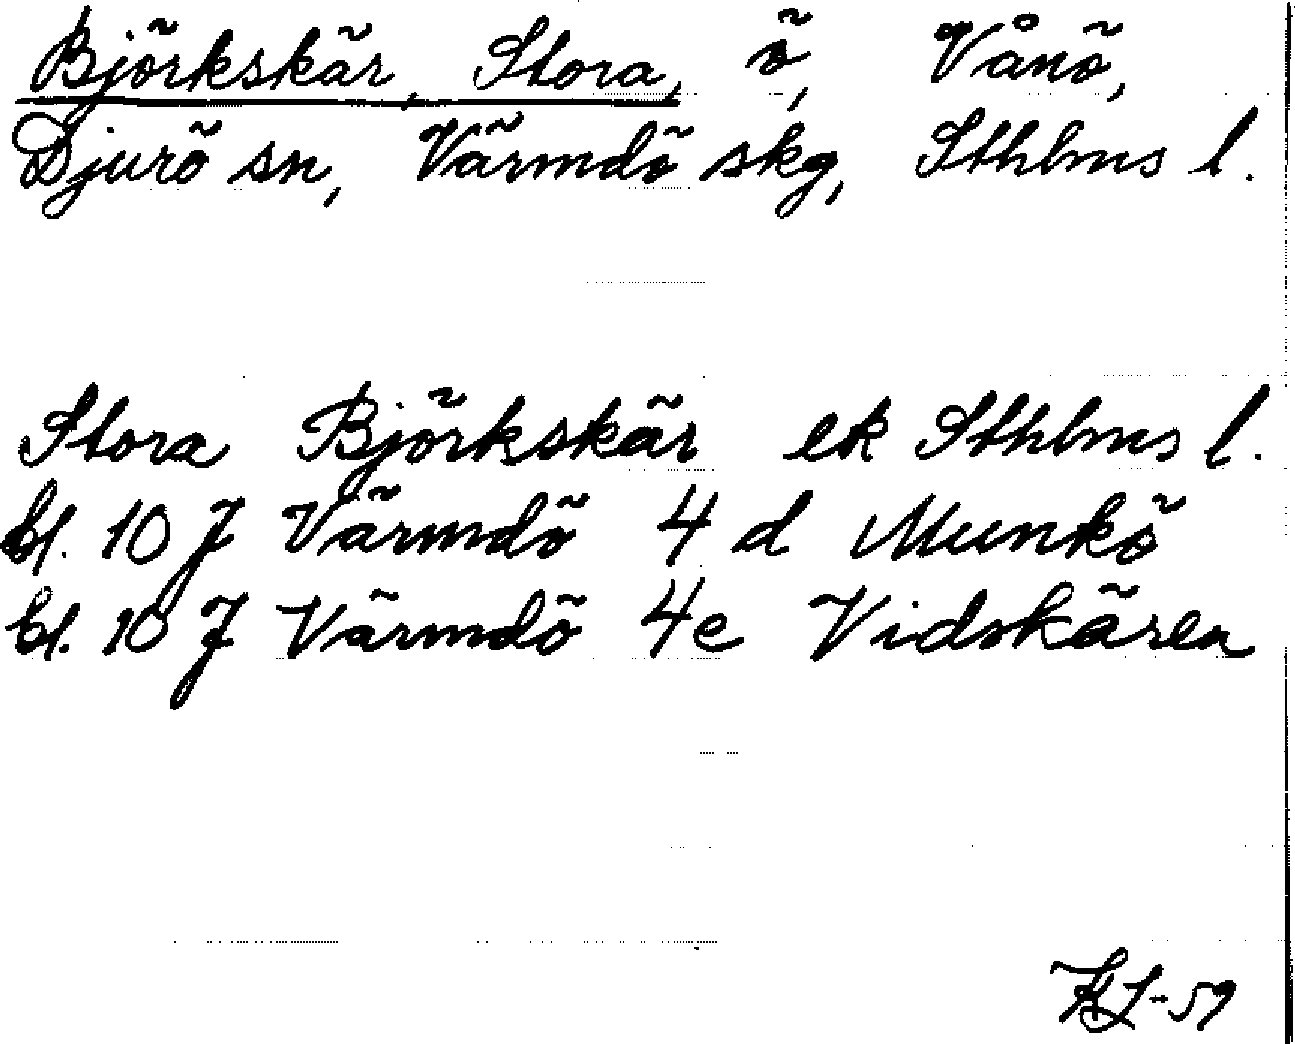 Björkskär, Stora, ö, Vånö,
Djurö sn, Värmdö skg, Sthlms l.
Stora Björkskär ek Sthlms l.
bl. 10 J Värmdö 4 d Munkö
bl. 10 J Värmdö 4e Vidskären